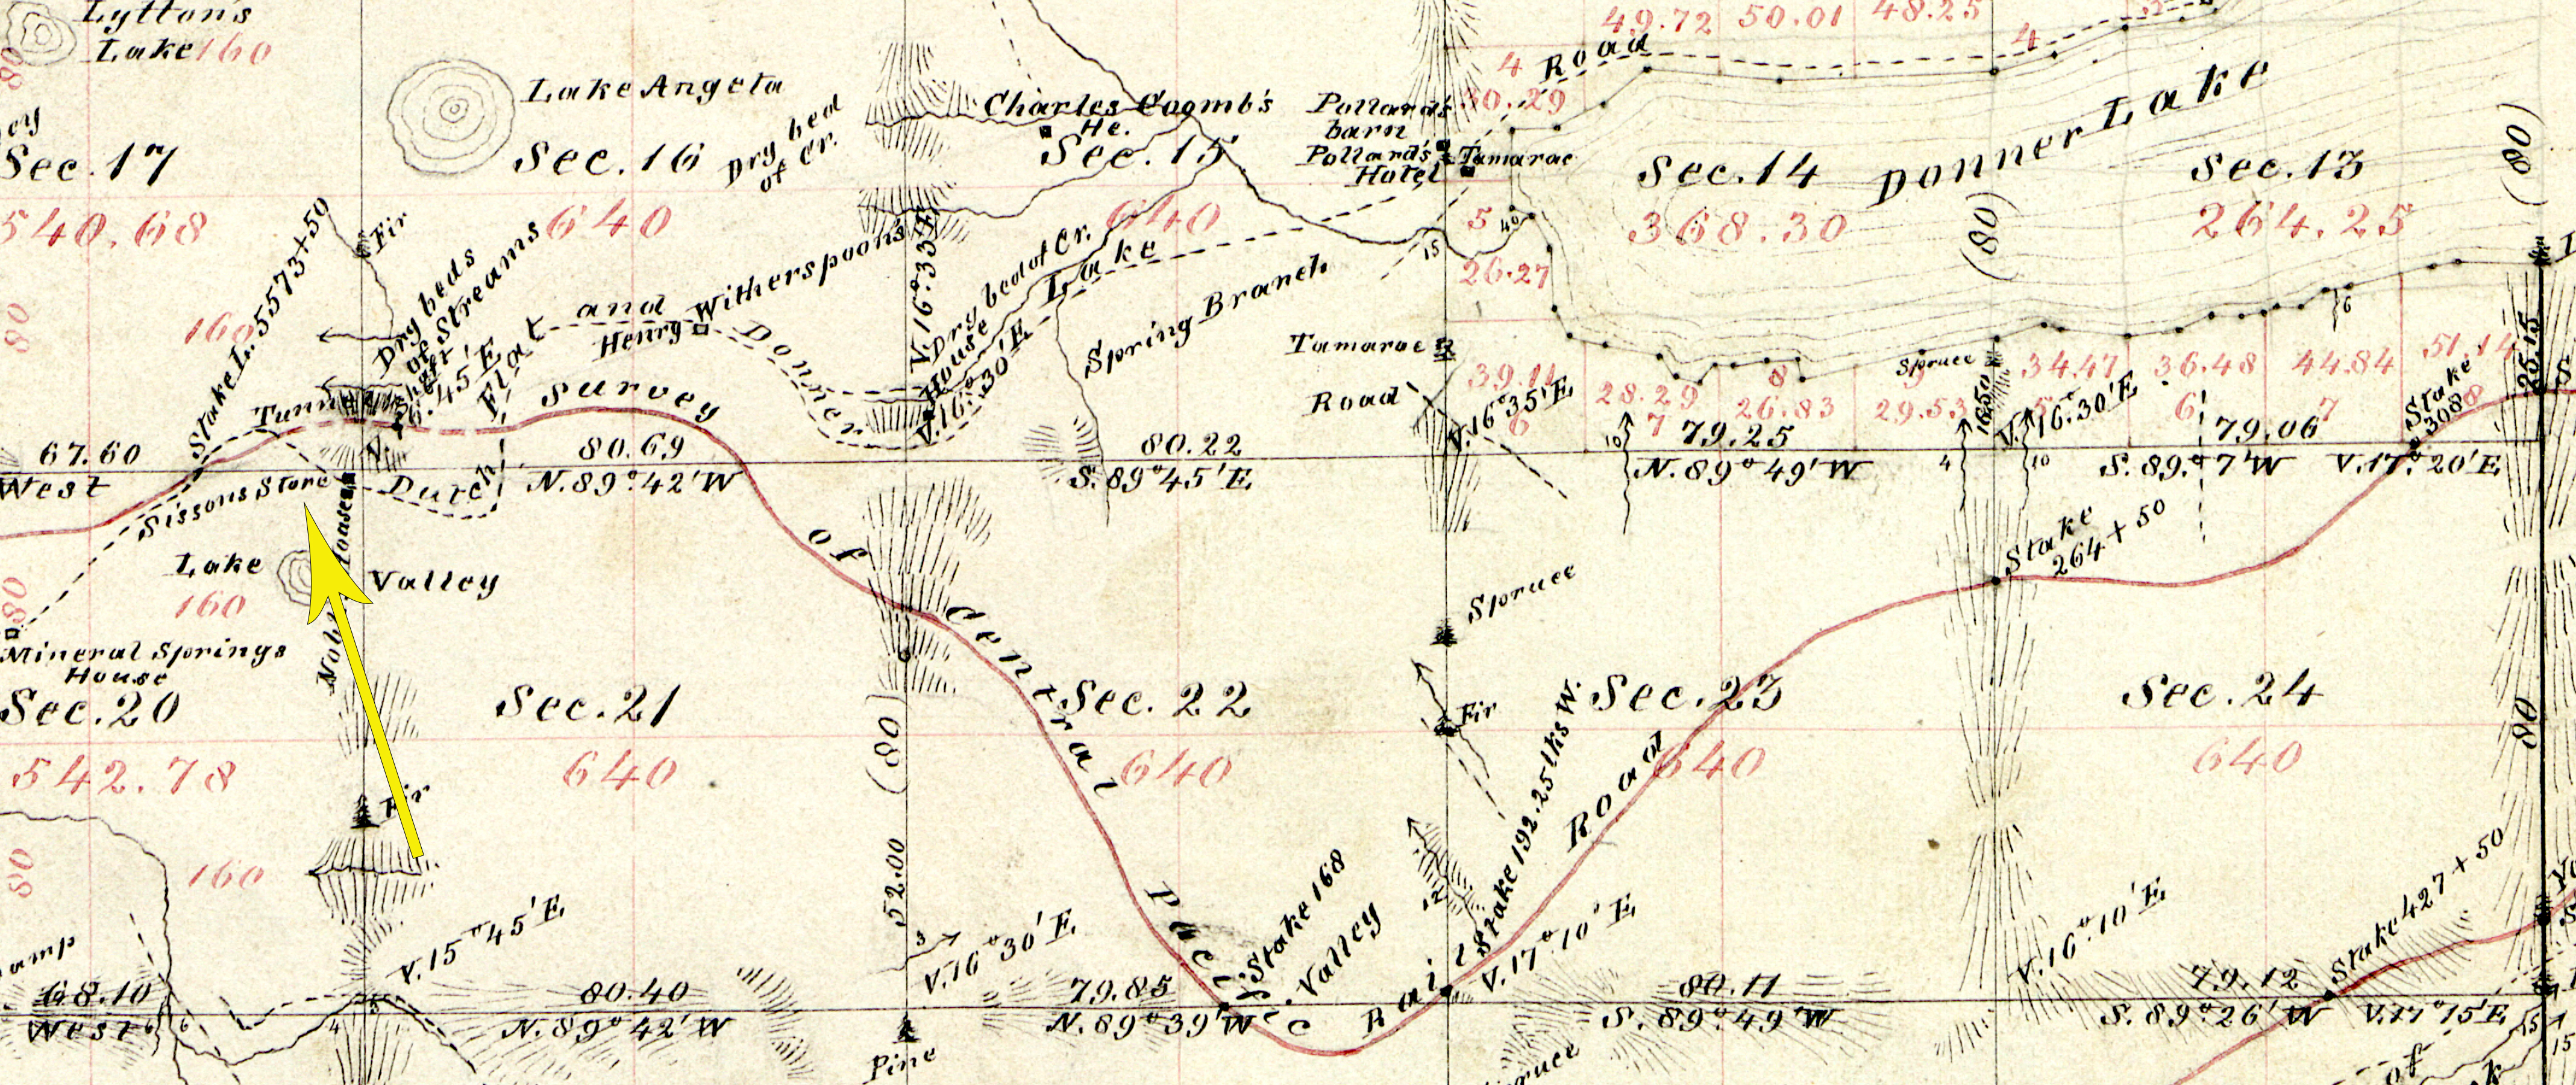 Lytton's
Lake 160
80
Lake Angela
Sec. 17
540.68
Sec. 16
640
Dry bed
of Cr.
Charles Coomb's
Ho.
Sec. 15
640
Pollard's
barn
Pollard's
Hotel
Tamarac
4
30.29
Road
49.72
50.01
48.25
4
Donner Lake
Sec. 14
368.30
(80)
Sec. 13
264.25
(80)
5
40
15
26.27
Fir
Stake L. 5573+50
160
80
Dry beds
of Streams
Shaft
Flat and Donner Lake
Henry Witherspoon's
House
V. 16° 33' E
Dry bed of Cr.
V. 16° 30' E
Spring Branch
Tamarac
Road
V. 16° 35' E
6
28.29
7
26.83
8
29.53
Spruce
34.47
36.48
6
44.84
7
51.14
8
6
16.50
V. 16° 30' E
Stake
308
25.15
Tunnel
Survey of Central Pacific Rail Road
67.60
West
Sissons Store
Dutch
80.69
N. 89° 42' W
80.22
S. 89° 45' E
10
79.25
N. 89° 49' W
4
10
79.06
V. 17° 20' E
Lake
Valley
160
80
Mineral Springs
House
Sec. 20
542.78
160
80
Fir
Sec. 21
640
(80)
52.00
Sec. 22
640
Spruce
Fir
Sec. 23
640
Stake
264+50
Sec. 24
640
80
Stake 192.25 lks W.
12
Stake 168
Valley
V. 15° 45' E
3
V. 16° 30' E
V. 17° 10' E
V. 16° 10' E
Stake 427+50
68.10
West
6
6
4
5
80.40
N. 89° 42' W
79.85
N. 89° 39' W
80.11
S. 89° 49' W
79.12
S. 89° 26' W
V. 17° 15' E
Pine
of
15
15